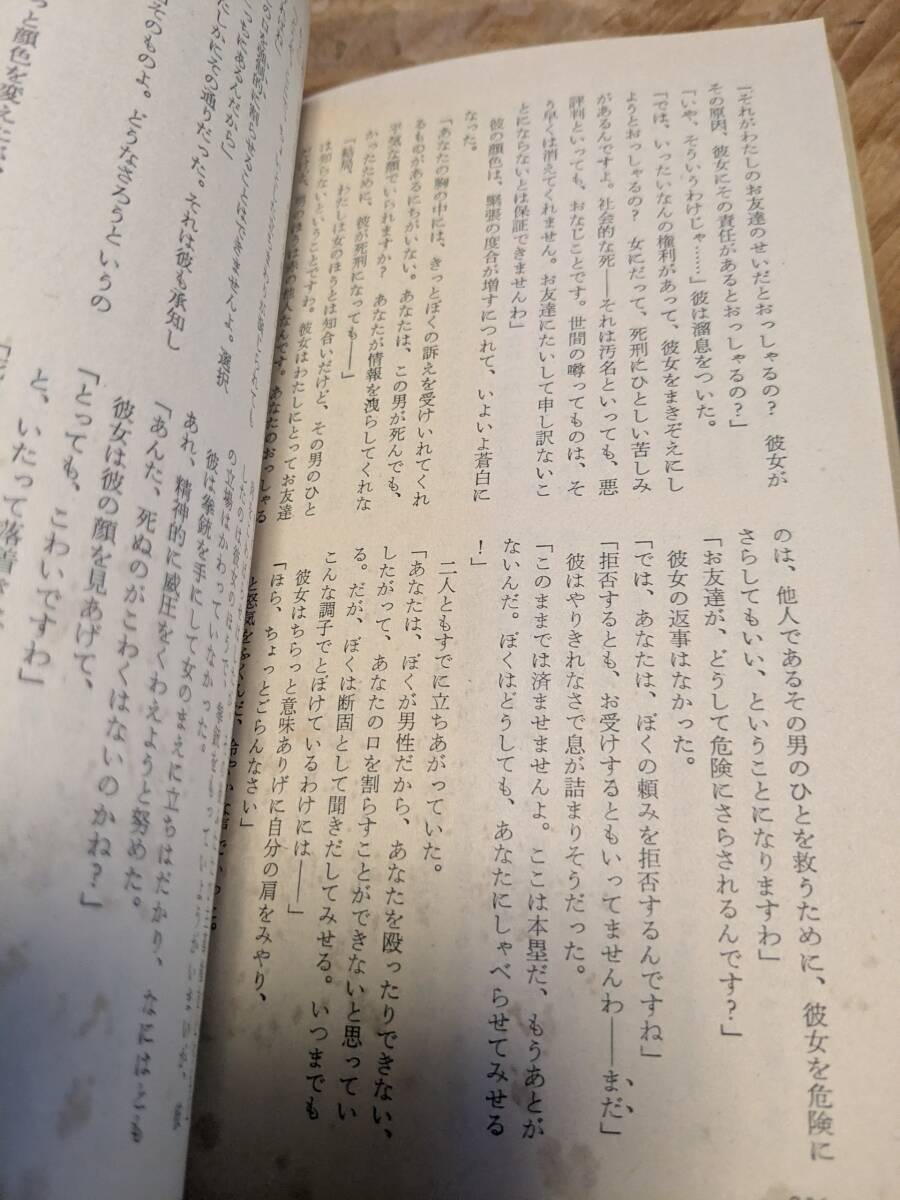 「それがわたしのお友達のせいだとおっしゃるの？　彼女が
その原因、彼女にその責任があるとおっしゃるの？」
「いや、そういうわけじゃ……」彼は溜息をついた。
「では、いったいなんの権利があって、彼女をまきぞえにし
ようとおっしゃるの？　女にだって、死刑にひとしい苦しみ
があるんですよ。社会的な死――それは汚名といっても、悪
評判といっても、おなじことです。世間の噂ってものは、そ
う早くは消えてくれません。お友達にたいして申し訳ないこ
とにならないとは保証できませんわ」
彼の顔色は、緊張の度合が増すにつれて、いよいよ蒼白に
なった。
「あなたの胸の中には、きっとぼくの訴えを受けいれてくれ
るものがあるにちがいない。あなたは、この男が死んでも、
平気な顔でいられますか？　あなたが情報を洩らしてくれな
かったために、彼が死刑になっても――」
「結局、わたしは女のほうとは知合いだけど、その男のひと
は知らないということですわ。彼女はわたしにとってお友達
男のほうは赤の他人なんです。あなたのおっしゃる
のは、他人であるその男のひとを救うために、彼女を危険に
さらしてもいい、ということになりますわ」
「お友達が、どうして危険にさらされるんです？」
彼女の返事はなかった。
「では、あなたは、ぼくの頼みを拒否するんですね」
「拒否するとも、お受けするともいってませんわ――まだ」
彼はやりきれなさで息が詰まりそうだった。
「このままでは済ませませんよ。ここは本塁だ、もうあとが
ないんだ。ぼくはどうしても、あなたにしゃべらせてみせる
！」
二人ともすでに立ちあがっていた。
「あなたは、ぼくが男性だから、あなたを殴ったりできない、
したがって、あなたの口を割らすことができないと思ってい
る。だが、ぼくは断固として聞きだしてみせる。いつまでも
こんな調子でとぼけているわけには――」
彼女はちらっと意味ありげに自分の肩をみやり、
「ほら、ちょっとごらんなさい」
に割らせることはできませんよ。選択
っちにあるんだから」
しかにその通りだった。それは彼も承知し
そのものよ。どうなさろうというの
っと顔色を変えた
の立場はかわっていなかった。
彼は拳銃を手にして女のまえに立ちはだかり、なにはとも
あれ、精神的に威圧をくわえようと努めた。
「あんた、死ぬのがこわくはないのかね？」
彼女は彼の顔を見あげて、
「とっても、こわいですわ」
と、いたって落着